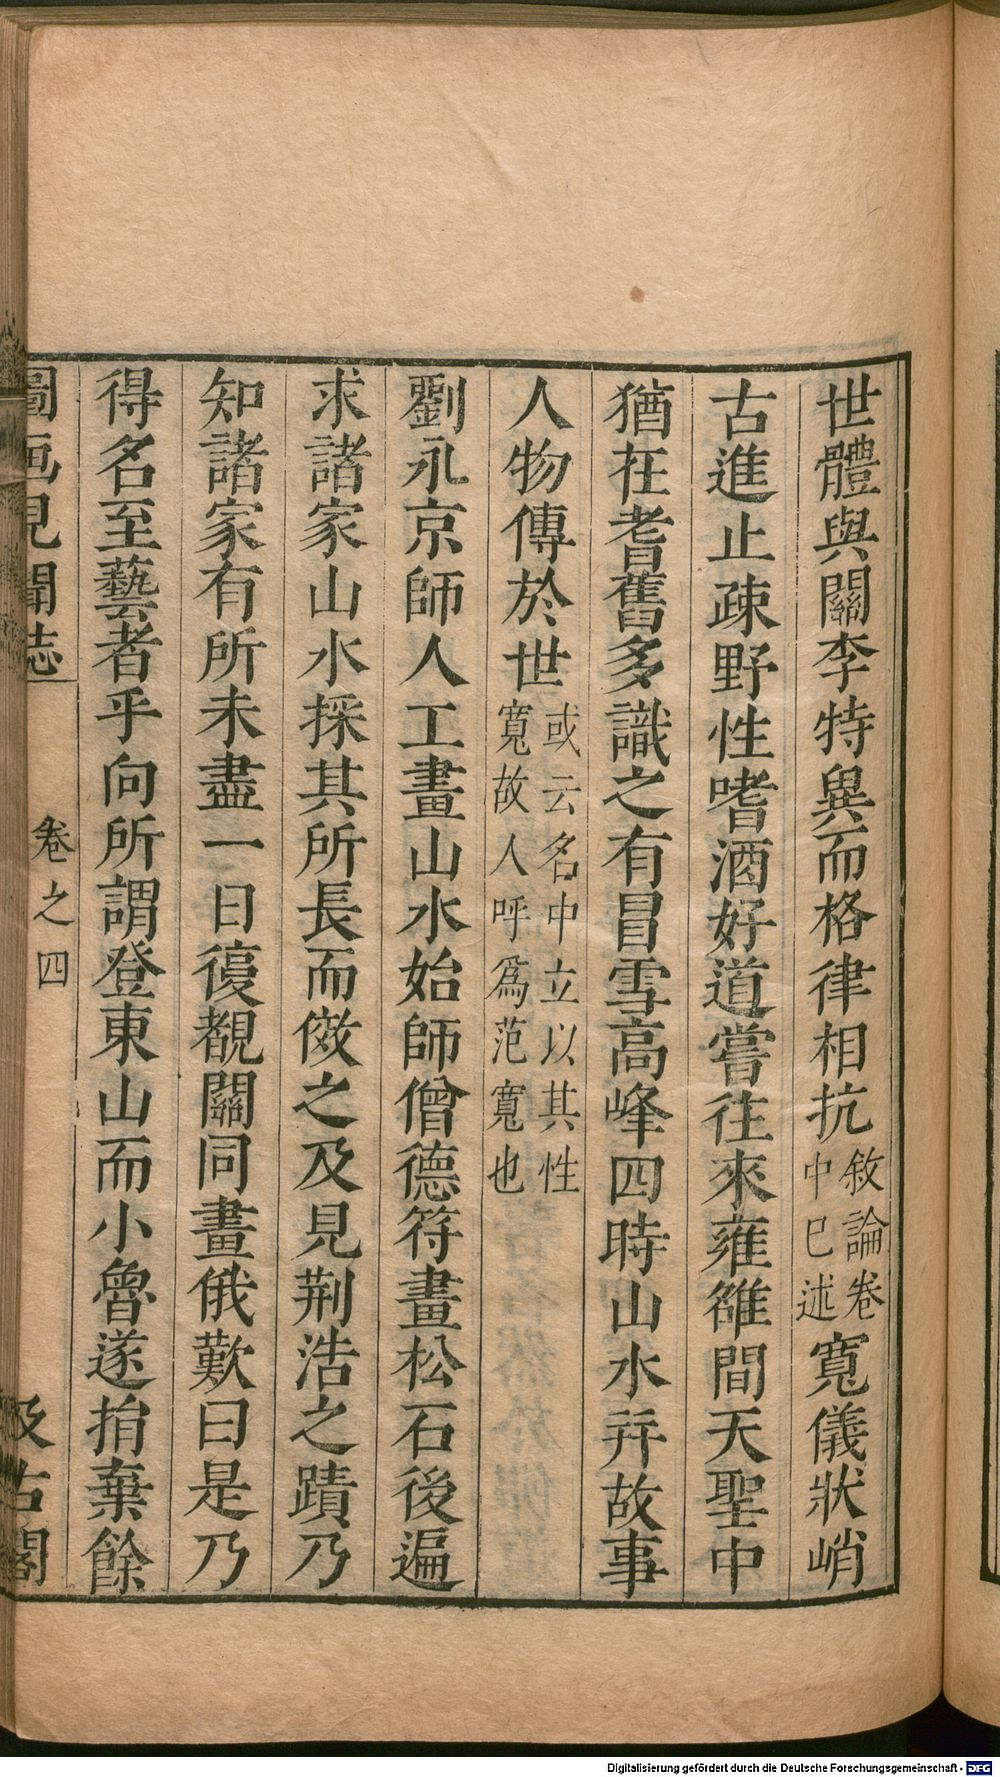 世體與關李特異而格律相抗敘論卷中巳述寬儀狀峭
古進止疎野性嗜酒好道嘗往來雍雒間天聖中
猶在耆舊多識之有冒雪高峰四時山水幷故事
人物傳於世或云名中立以其性寬故人呼爲范寬也
劉永京師人工畫山水始師僧德符畫松石後遍
求諸家山水採其所長而傚之及見荆浩之蹟乃
知諸家有所未盡一日復覩關同畫俄歎曰是乃
得名至藝者乎向所謂登東山而小魯遂捐棄餘
圖画見聞志 卷之四 汲古閣
Digitalisierung gefördert durch die Deutsche Forschungsgemeinschaft - DFG